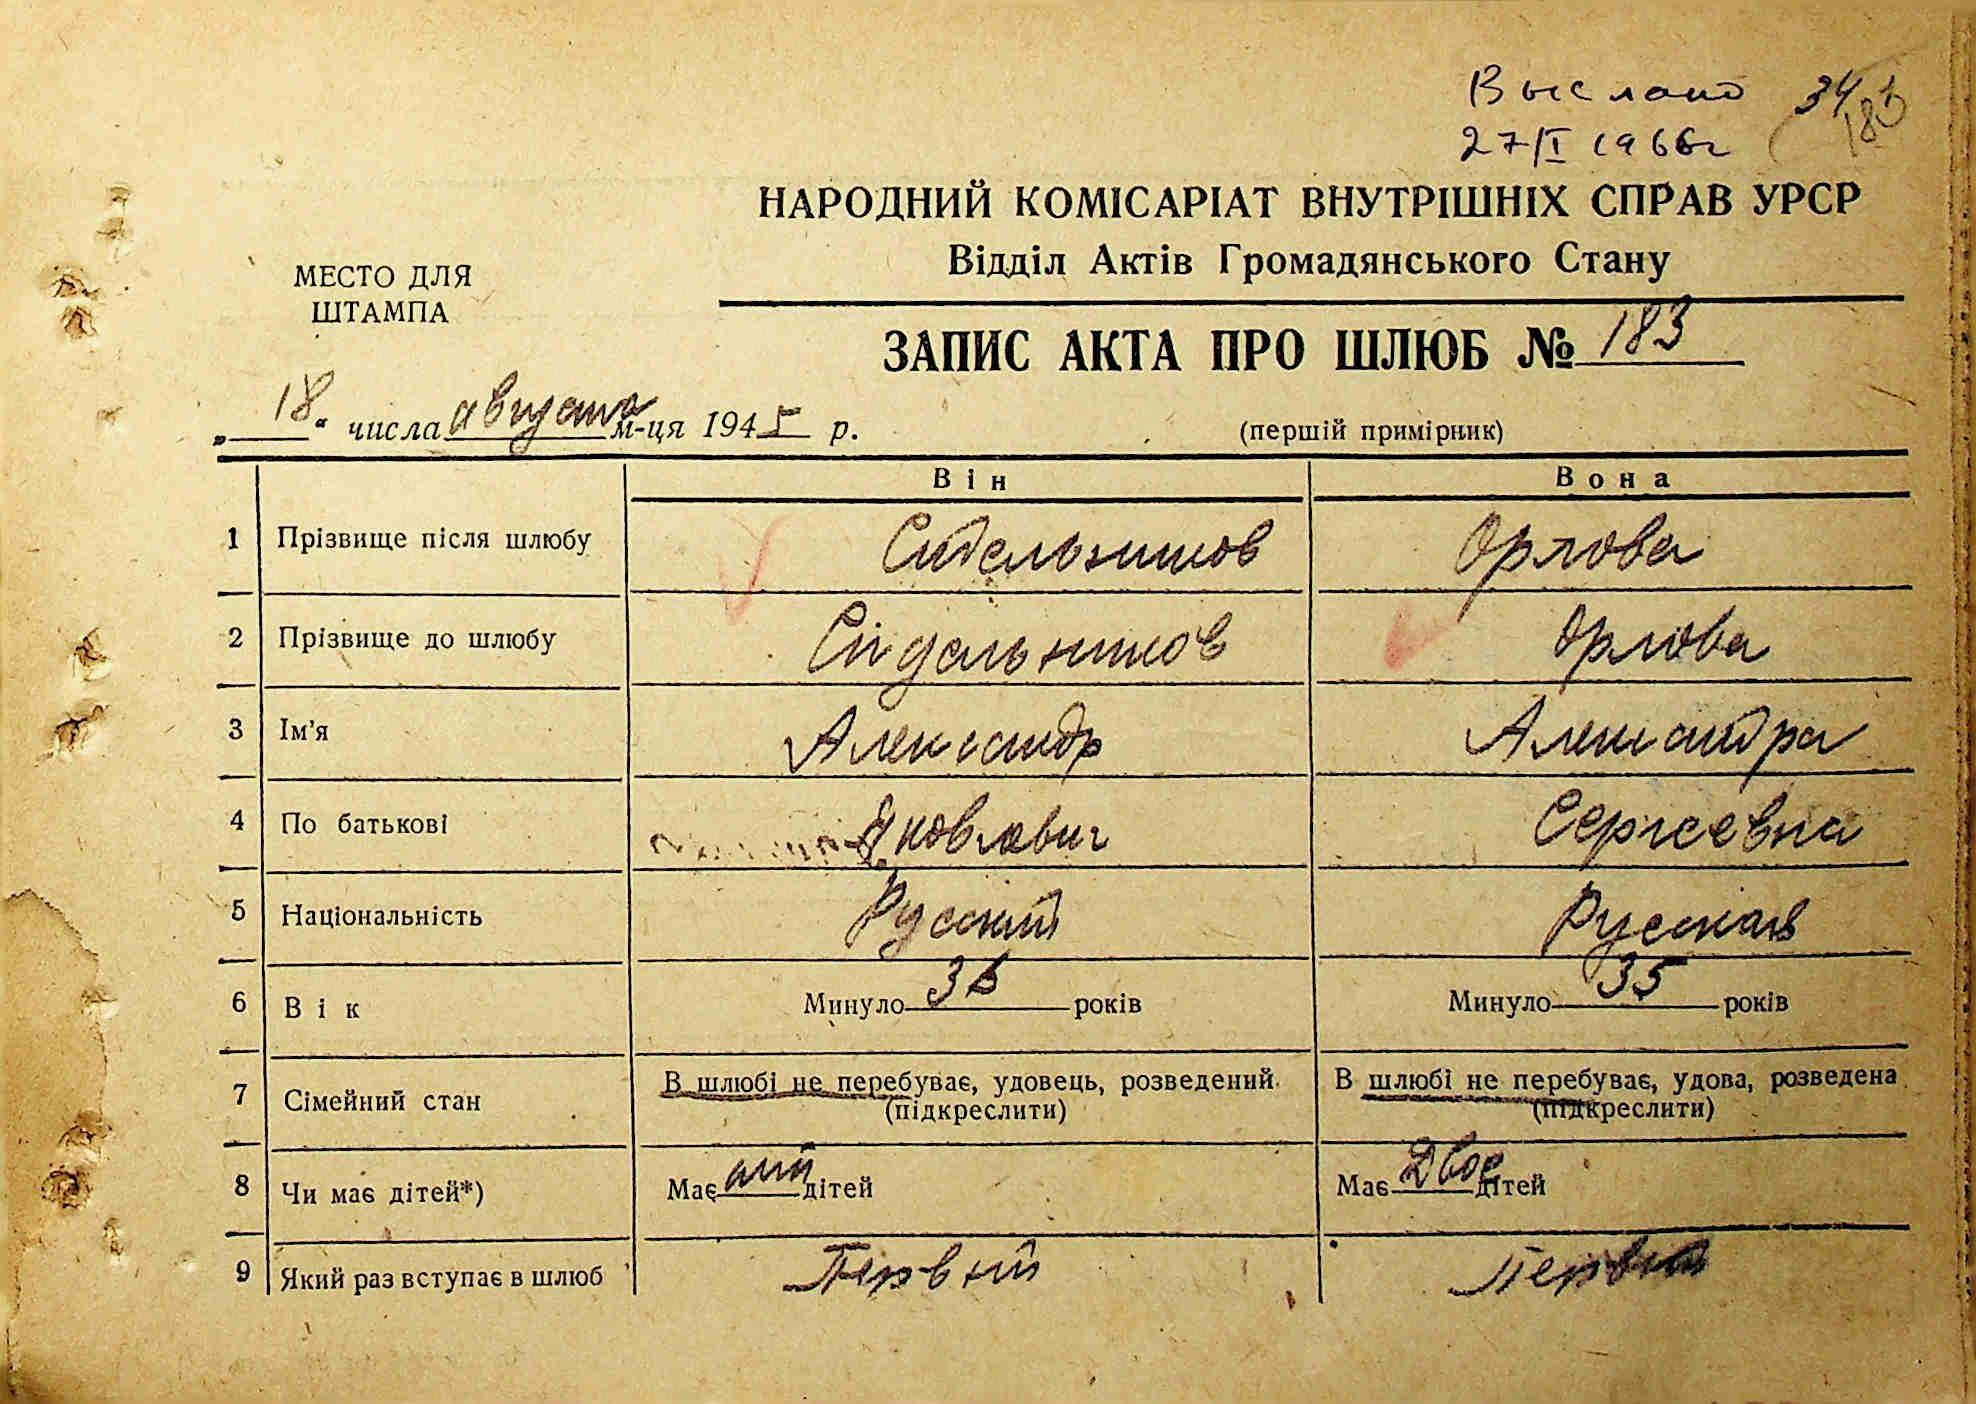 Выслано 34
27/I 1966г 183
НАРОДНИЙ КОМІСАРІАТ ВНУТРІШНІХ СПРАВ УРСР
Відділ Актів Громадянського Стану
МЕСТО ДЛЯ
ШТАМПА
ЗАПИС АКТА ПРО ШЛЮБ № 183
„18“ числа августа м-ця 1945 р.
(першій примірник)
Він Вона
1 Прізвище після шлюбу Сидельников Орлова
2 Прізвище до шлюбу Сидельников Орлова
3 Ім'я Александр Александра
4 По батькові Яковлевич Сергеевна
5 Національність Русский Русская
6 Вік Минуло 36 років Минуло 35 років
7 Сімейний стан В шлюбі не перебуває, удовець, розведений. В шлюбі не перебуває, удова, розведена
(підкреслити) (підкреслити)
8 Чи має дітей*) Має дітей Має Двое дітей
9 Який раз вступає в шлюб Первый Первый